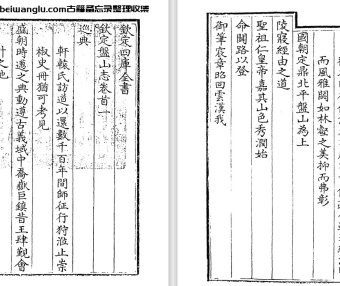 beiwanglu.com古籍备忘录整理收集
欽定四庫全書
欽定盤山志卷首一
巡典
軒轅氏訪道以還數千百年間師征行狩涖止崇
椒史冊猶可考見
盛朝時邁之典動遵古義域中喬嶽巨鎮昔王肆覲會
計之地
而風雅闕如林壑之美抑而弗彰
國朝定鼎北平盤山為上
陵寢經由之道
聖祖仁皇帝嘉其山色秀潤始
命闢路以登
御筆宸章昭回雲漢我